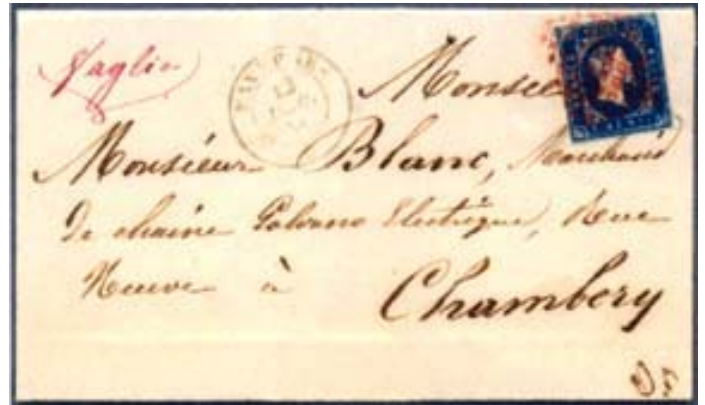 Vaglia
Monsieur
Monsieur Blanc, Marchand
De chaine Galvano Electrique, Rue
Neuve à
Chambery